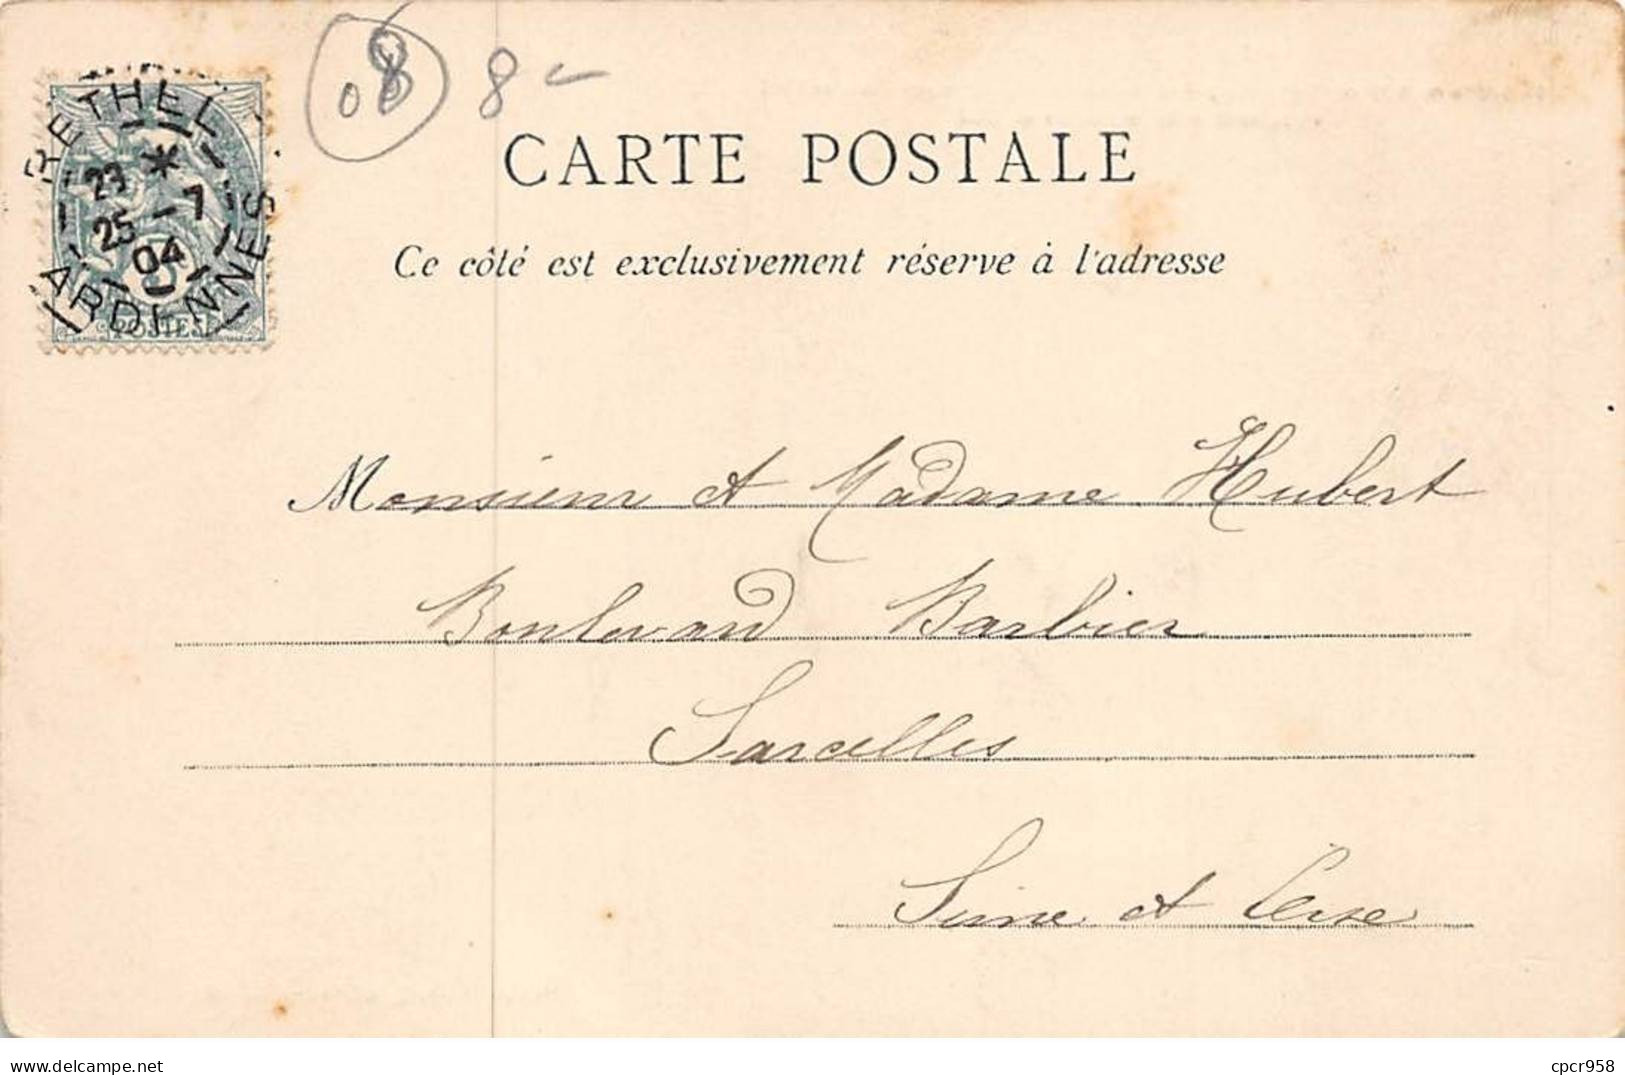 08 8 -
RETHEL
23 *
25 - 7
04
ARDENNES
5
POSTES
CARTE POSTALE
Ce côté est exclusivement réserve à l'adresse
Monsieur et Madame Hubert
Boulevard Barbier
Sarcelles
Seine et Oise
www.delcampe.net
cpcr958